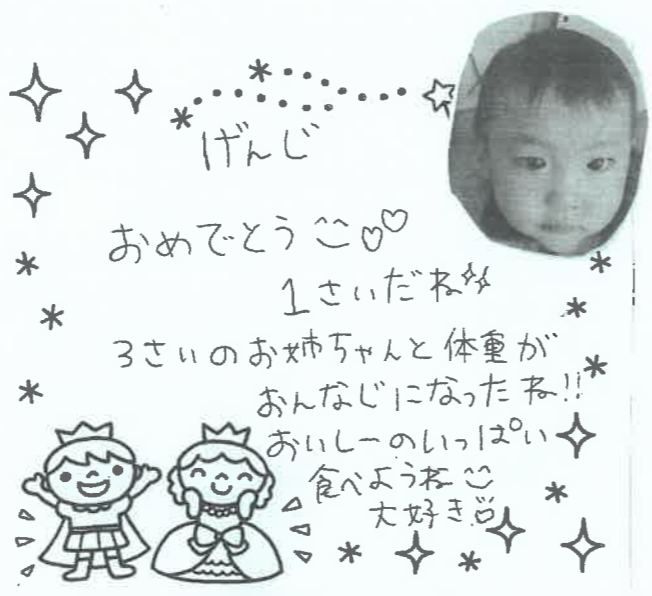 げんじ
おめでとう
1さいだね
3さいのお姉ちゃんと体重が
おんなじになったね!!
おいしーのいっぱい
食べようね
大好き